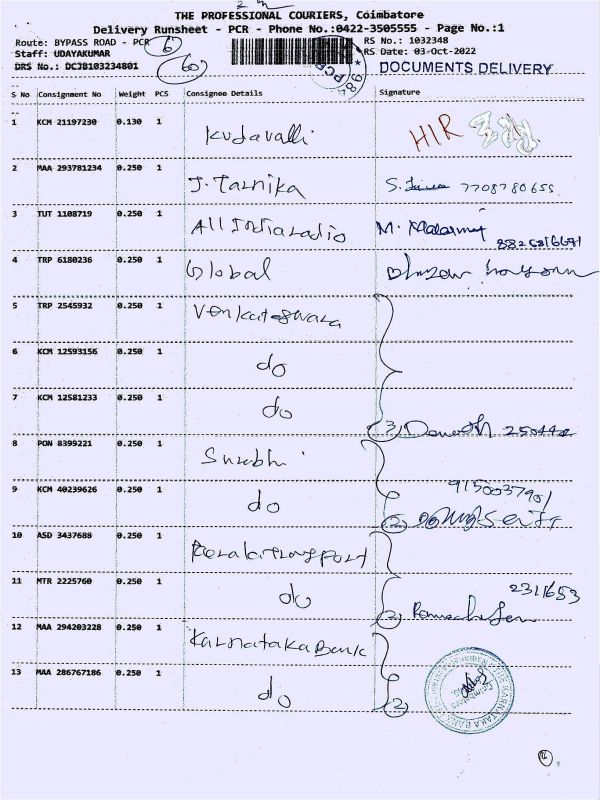 THE PROFESSIONAL COURIERS, Coimbatore
Delivery Runsheet - PCR - Phone No.:0422-3505555 - Page No.:1
Route: BYPASS ROAD - PCR 6 RS No.: 1032348
Staff: UDAYAKUMAR RS Date: 03-Oct-2022
DRS No.: DCJB103234801 60 DOCUMENTS DELIVERY
S No Consignment No Weight PCS Consignee Details Signature
1 KCM 21197230 0.130 1 Kudavalli HIR
2 MAA 293781234 0.250 1 J. Tarnika S. 7708780655
3 TUT 1108719 0.250 1 All India radio M.
4 TRP 6180236 0.250 1 Global
5 TRP 2545932 0.250 1 Venkateswara
6 KCM 12593156 0.250 1 do
7 KCM 12581233 0.250 1 do 3
8 PON 8399221 0.250 1 Surabhi
9 KCM 40239626 0.250 1 do 2 9150037901
10 ASD 3437688 0.250 1
11 MTR 2225760 0.250 1 do 2 2311653
12 MAA 294203228 0.250 1 Karnataka Bank
13 MAA 286767186 0.250 1 do 2